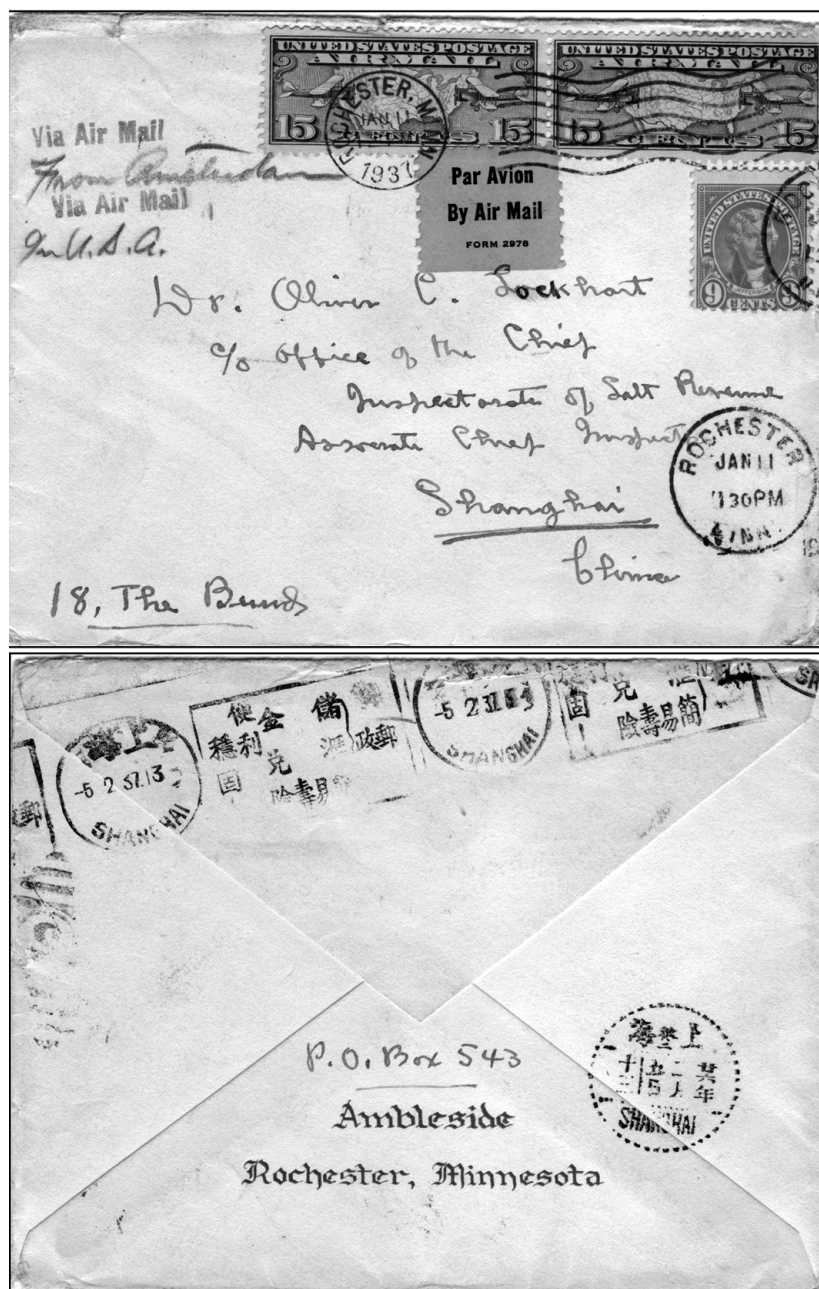 UNITED STATES POSTAGE
AIR MAIL
15 CENTS 15
UNITED STATES POSTAGE
AIR MAIL
15 CENTS 15
ROCHESTER, MINN
JAN 11
1937
Via Air Mail
From Amsterdam
Via Air Mail
In U.S.A.
Par Avion
By Air Mail
FORM 2978
UNITED STATES POSTAGE
JEFFERSON
9 CENTS 9
Dr. Oliver C. Lockhart
c/o Office of the Chief
Inspectorate of Salt Revenue
Associate Chief Inspector
Shanghai
China
18, The Bund
ROCHESTER
JAN 11
1130PM
MINN.
上海
-5 2 37.13
SHANGHAI
儲金
便利
穩固
郵政
匯兌
簡易壽險
-5 2 37.13
SHANGHAI
匯兌
固
簡易壽險
郵政
P.O. Box 543
Ambleside
Rochester, Minnesota
上海
廿六年
二月
五日
十三
SHANGHAI